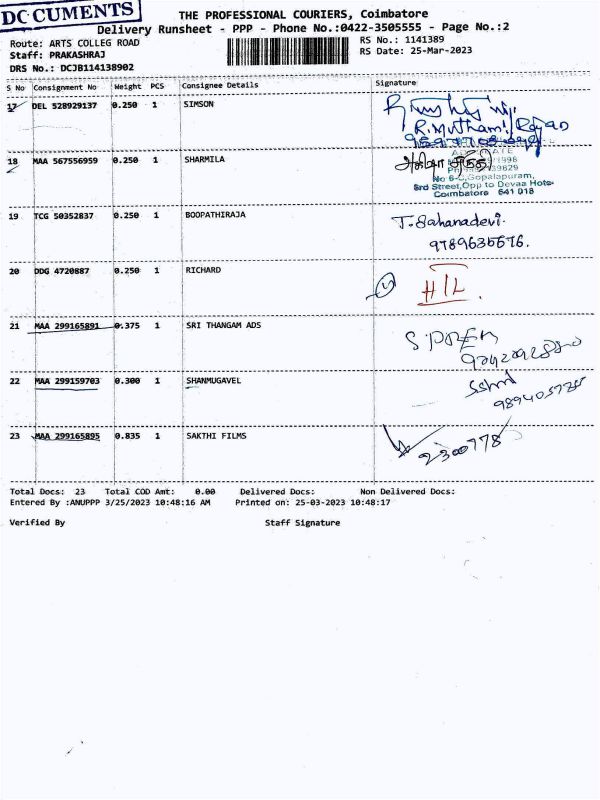 DOCUMENTS
THE PROFESSIONAL COURIERS, Coimbatore
Delivery Runsheet - PPP - Phone No.:0422-3505555 - Page No.:2
Route: ARTS COLLEG ROAD
RS No.: 1141389
Staff: PRAKASHRAJ
RS Date: 25-Mar-2023
DRS No.: DCJB114138902
S No Consignment No Weight PCS Consignee Details Signature
17 DEL 528929137 0.250 1 SIMSON
R. Muthamil Rajan
18 MAA 567556959 0.250 1 SHARMILA
No 6-C,Gopalapuram,
3rd Street,Opp to Devaa Hotel
Coimbatore 641 018
19 TCG 50352837 0.250 1 BOOPATHIRAJA T. Sahanadevi.
9789635676.
20 DDG 4720887 0.250 1 RICHARD H/L.
21 MAA 299165891 0.375 1 SRI THANGAM ADS S. PREM
22 MAA 299159703 0.300 1 SHANMUGAVEL
23 MAA 299165895 0.835 1 SAKTHI FILMS
2300778
Total Docs: 23 Total COD Amt: 0.00 Delivered Docs: Non Delivered Docs:
Entered By :ANUPPP 3/25/2023 10:48:16 AM Printed on: 25-03-2023 10:48:17
Verified By Staff Signature